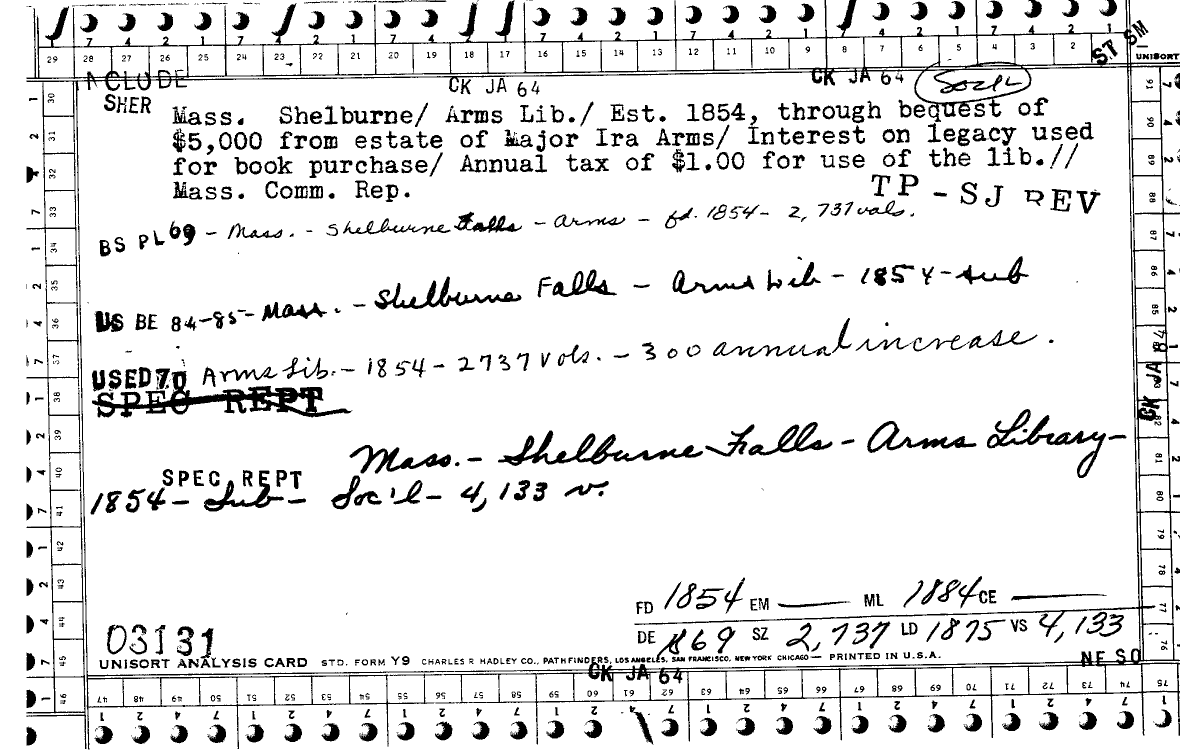 7 4 2 1 7 4 2 1 7 4 2 1 7 4 2 1 7 4 2 1 7 4 2 1 7 4 2 1
29 28 27 26 25 24 23 22 21 20 19 18 17 16 15 14 13 12 11 10 9 8 7 6 5 4 3 2 1 UNISORT
ST SM
INCLUDE CK JA 64 CK JA 64 Soc'l
SHER Mass. Shelburne/ Arms Lib./ Est. 1854, through bequest of
$5,000 from estate of Major Ira Arms/ Interest on legacy used
for book purchase/ Annual tax of $1.00 for use of the lib.//
Mass. Comm. Rep. TP - SJ REV
BS PL 69 - Mass. - Shelburne Falls - Arms - fd. 1854 - 2,737 vols.
US BE 84-85 - Mass. - Shelburne Falls - Arms Lib - 1854 - sub
USED 70 Arms Lib. - 1854 - 2737 vols. - 300 annual increase.
SPEC REPT
Mass. - Shelburne Falls - Arms Library -
SPEC REPT
1854 - Sub - Soc'l - 4,133 v.
CK JA 64
FD 1854 EM — ML 1884 CE —
DE 1869 SZ 2,737 LD 1875 VS 4,133
03131
UNISORT ANALYSIS CARD STD. FORM Y9 CHARLES R. HADLEY CO., PATHFINDERS, LOS ANGELES, SAN FRANCISCO, NEW YORK CHICAGO — PRINTED IN U.S.A. NE SO
CK JA 64
47 48 49 50 51 52 53 54 55 56 57 58 59 60 61 62 63 64 65 66 67 68 69 70 71 72 73 74 75
1 2 4 7 1 2 4 7 1 2 4 7 1 2 4 7 1 2 4 7 1 2 4 7 1 2 4 7 1